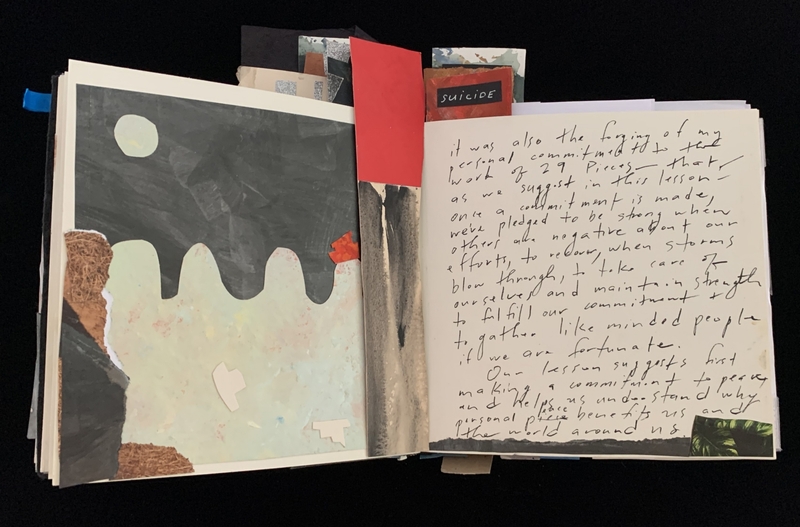 SUICIDE
it was also the forging of my
personal commitment to the
work of 29 Pieces – that,
as we suggest in this lesson –
once a commitment is made,
we're pledged to be strong when
others are negative about our
efforts, to rebow, when storms
blow through, to take care of
ourselves and maintain strength
to fulfill our commitment &
to gather like minded people
if we are fortunate.
Our lesson suggests first
making a commitment to peace
and helps us understand why
personal peace benefits us and
the world around us.